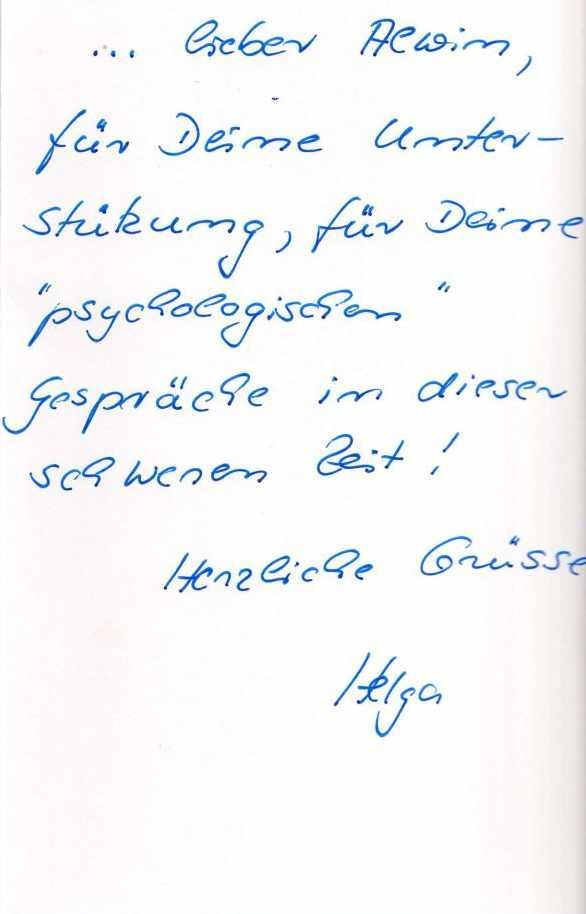 ... lieber Alwin,
für Deine Unter-
stützung, für Deine
"psychologischen"
Gespräche in dieser
schweren Zeit!
Herzliche Grüsse
Helga